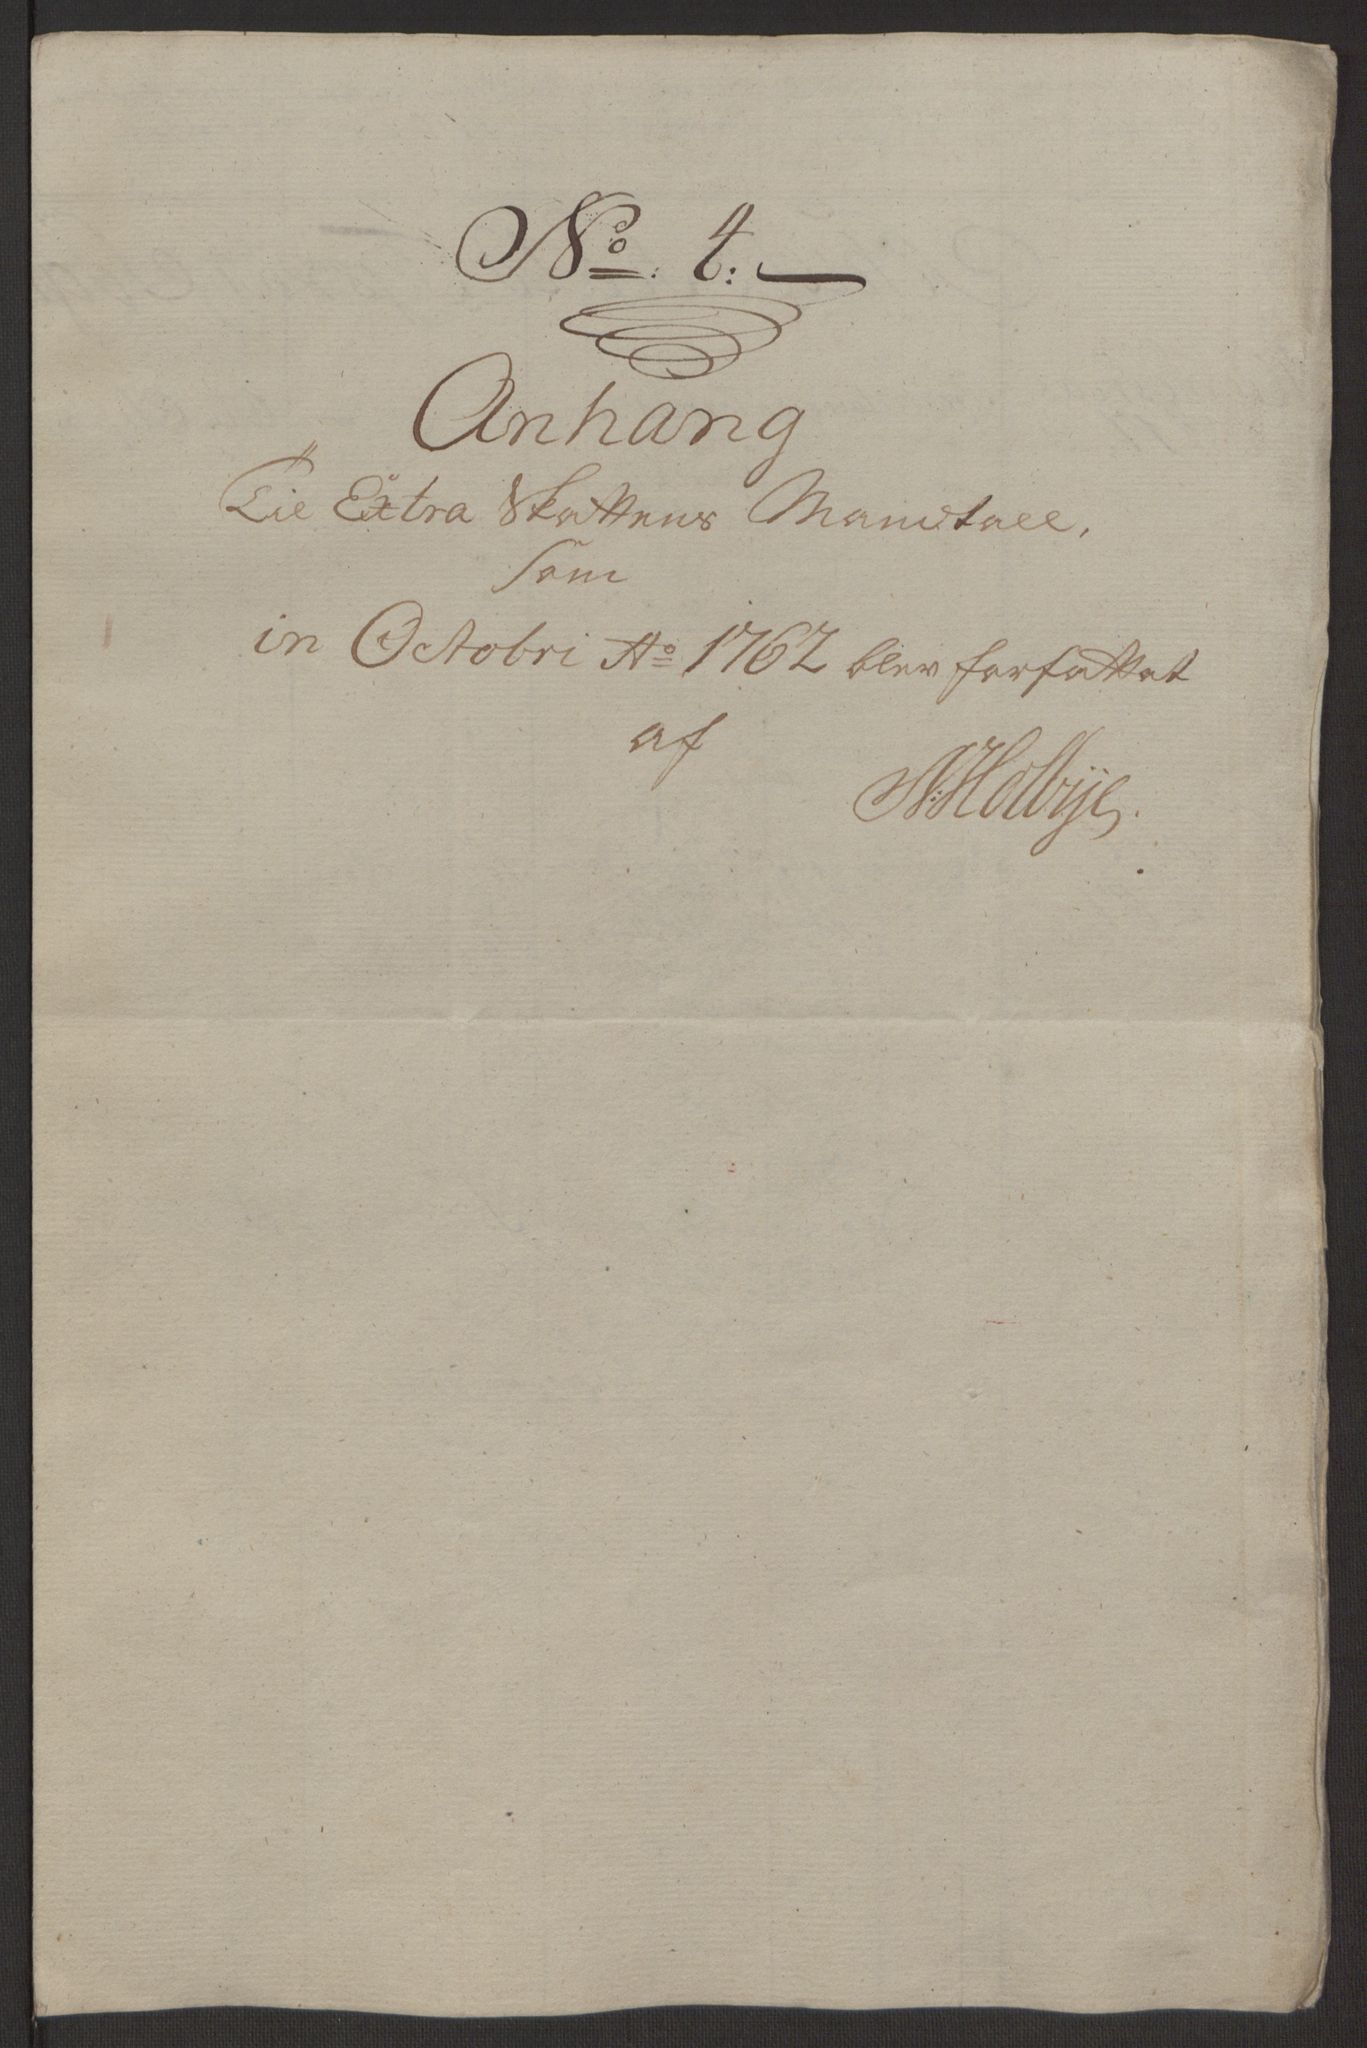 No. 4.
Anhang
Til Extra Skattens Mandtall,
som
in Octobri Ao 1762 blev forfattet
af
N: Holbye.